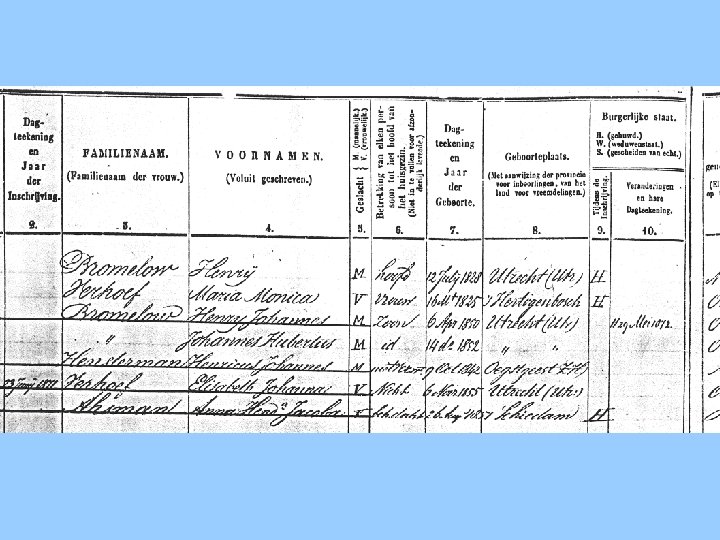 Dag- teekening en Jaar der Inschrijving.
FAMILIENAAM. (Familienaam der vrouw.)
VOORNAMEN. (Voluit geschreven.)
Geslacht { M. (mannelijk.) V. (vrouwelijk.)
Betrekking van elken persoon tot het hoofd van het huisgezin. (Niet in te vullen voor afzonderlijk levende.)
Dag- teekening en Jaar der Geboorte.
Geboorteplaats. (Met aanwijzing der provincie voor inboorlingen, van het land voor vreemdelingen.)
Burgerlijke staat.
H. (gehuwd.)
W. (weduwenstaat.)
S. (gescheiden van echt.)
Tijdens de Inschrijving.
Veranderingen en hare Dagteekening.
2. 3. 4. 5. 6. 7. 8. 9. 10.
Bromelow Henry M hoofd 12 July 1828 Utrecht (Utr) H
Verhoef Maria Monica V Vrouw 1825 's Hertogenbosch H
Bromelow Henry Johannes M Zoon 6 Apr 1850 Utrecht (Utr) Mei 1872
" Johannes Hubertus M id 14 1852 " "
Henderman Henricus Johannes M 9 Oct Oegstgeest ZH
Verhoef Elisabeth Johanna V Nicht 6 1855 Utrecht (Utr)
Anna Hend^a Jacoba V Schiedam H